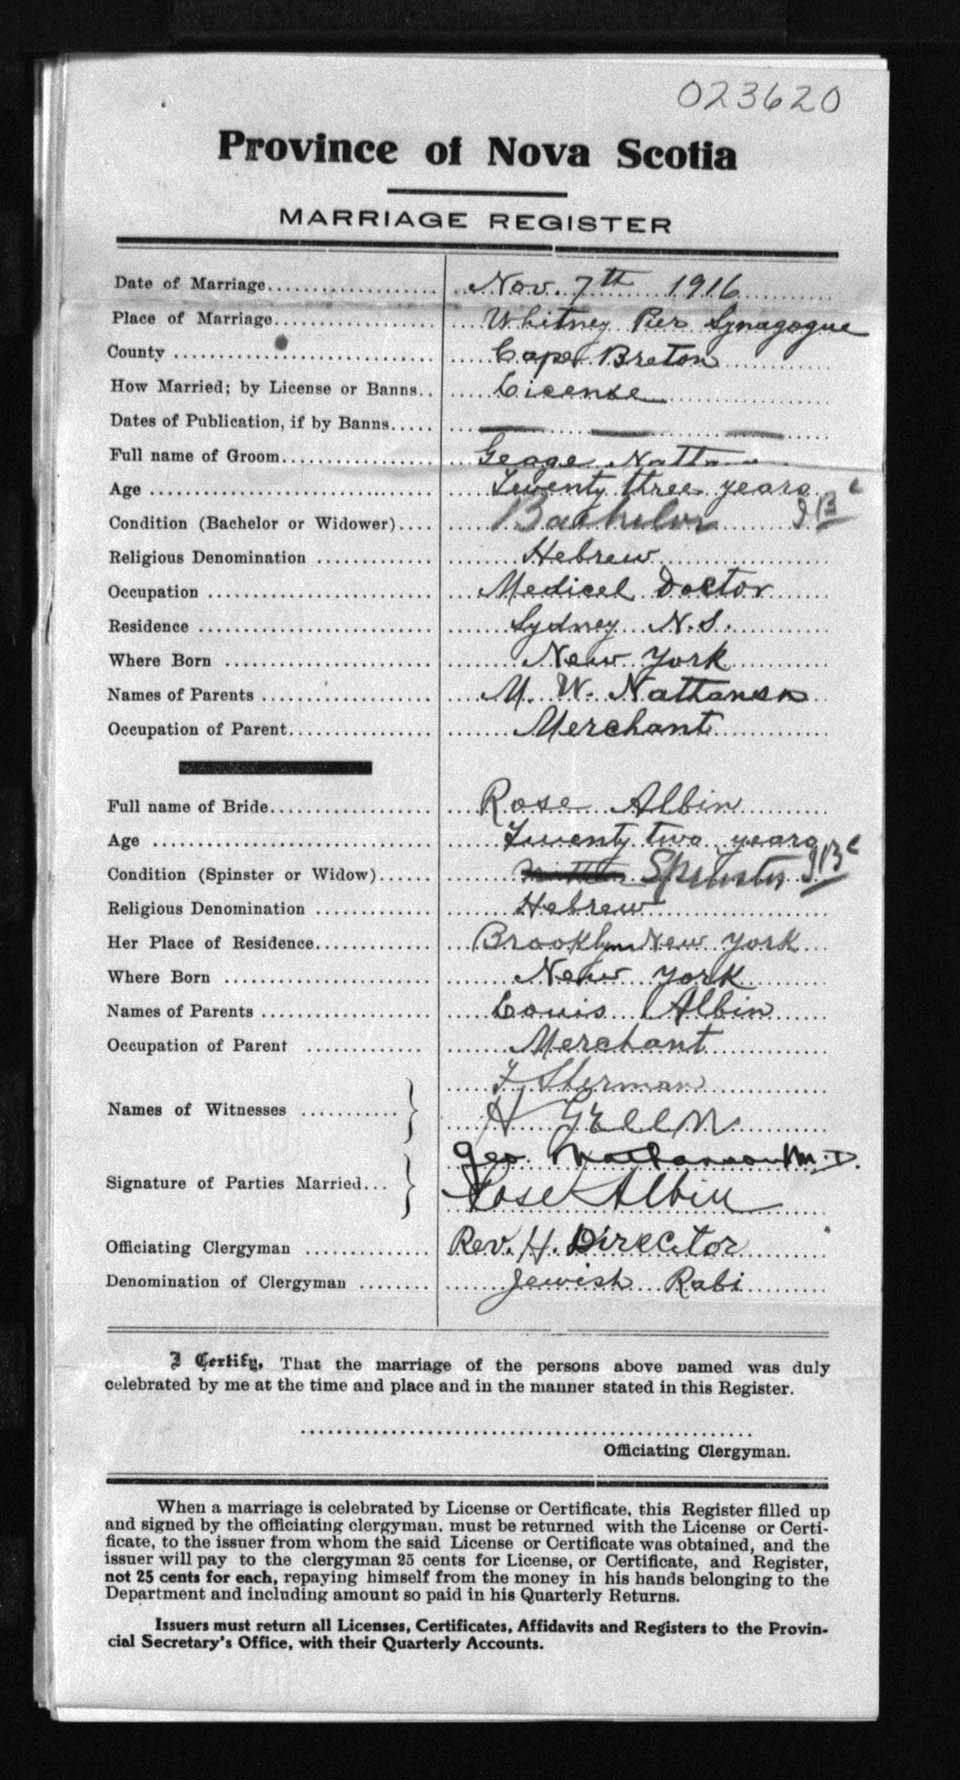 023620
Province of Nova Scotia
MARRIAGE REGISTER
Date of Marriage.................... Nov. 7th 1916
Place of Marriage................... Whitney Pier Synagogue
County .............................. Cape Breton
How Married; by License or Banns.. License
Dates of Publication, if by Banns..... — — —
Full name of Groom.................. George
Age .................................. Twenty three years
Condition (Bachelor or Widower).... Bachelor
Religious Denomination ............. Hebrew
Occupation .......................... Medicel Doctor
Residence ........................... Sydney N.S.
Where Born ........................ New York
Names of Parents .................. M. W. Nattanson
Occupation of Parent................ Merchant
Full name of Bride................... Rose Albin
Age ................................. Twenty two years
Condition (Spinster or Widow)...... Spinster
Religious Denomination ............. Hebrew
Her Place of Residence............. Brooklyn New York
Where Born ........................ New York
Names of Parents .................. Louis Albin
Occupation of Parent ............. Merchant
Sherman
Names of Witnesses ...........
H
Geo. M.D.
Signature of Parties Married...
Rose Albin
Officiating Clergyman ............. Rev. H. Director
Denomination of Clergyman ........ Jewish Rabi
I Certify, That the marriage of the persons above named was duly
celebrated by me at the time and place and in the manner stated in this Register.
Officiating Clergyman.
When a marriage is celebrated by License or Certificate, this Register filled up
and signed by the officiating clergyman, must be returned with the License or Certi-
ficate, to the issuer from whom the said License or Certificate was obtained, and the
issuer will pay to the clergyman 25 cents for License, or Certificate, and Register,
not 25 cents for each, repaying himself from the money in his hands belonging to the
Department and including amount so paid in his Quarterly Returns.
Issuers must return all Licenses, Certificates, Affidavits and Registers to the Provin-
cial Secretary's Office, with their Quarterly Accounts.